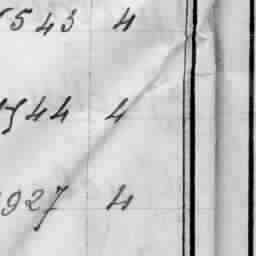 543 4
544 4
927 4